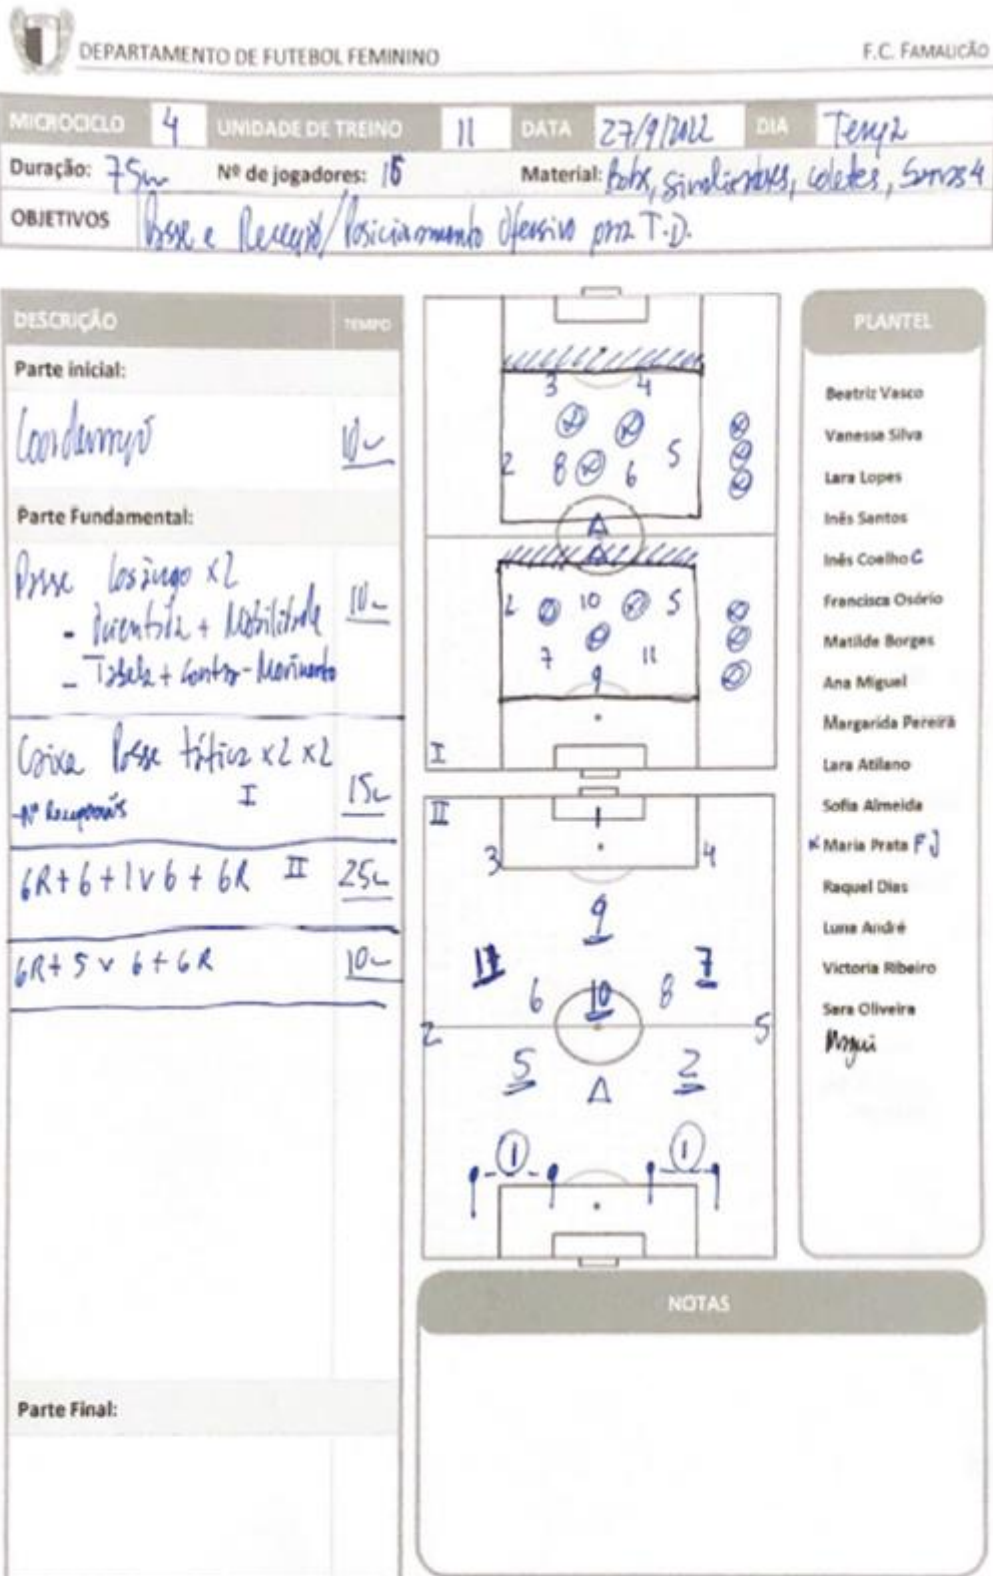 DEPARTAMENTO DE FUTEBOL FEMININO
F.C. FAMALICÃO
MICROCICLO 4 UNIDADE DE TREINO 11 DATA 27/9/2022 DIA Terça
Duração: 75m Nº de jogadores: 16 Material: Bolas, sinalizadores, coletes,
OBJETIVOS Posse e Receção/Posicionamento Ofensivo para T.D.
DESCRIÇÃO TEMPO
Parte inicial:
Coordenação 10m
Parte Fundamental:
Posse losango x2 10m
- Orientada + Mobilidade
- Tabela + Contra-Movimento
Caixa Posse tática x2 x2
-Nº Recuperações I 15m
6R+6+1v6+6R II 25m
6R+5v6+6R 10m
Parte Final:
3 4
2 8 6 5
A
A
2 10 5
7 11
9
I
II
1
3 4
9
11 7
6 10 8
2 5
5 2
A
1 1
PLANTEL
Beatriz Vasco
Vanessa Silva
Lara Lopes
Inês Santos
Inês Coelho C
Francisca Osório
Matilde Borges
Ana Miguel
Margarida Pereira
Lara Atilano
Sofia Almeida
x Maria Prata FJ
Raquel Dias
Luna André
Victoria Ribeiro
Sara Oliveira
Magui
NOTAS